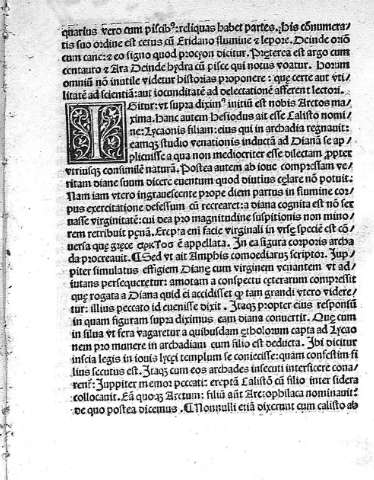 quarius vero cum piscibꝰ: reliquas habet partes. His cōnumera/
tis suo ordine est cetus cū Eridano flumine ⁊ lepore. Deinde oriō
cum cane: ⁊ eo signo quod procyon dicitur. Preterea est argo cum
centauro ⁊ Ara Deinde hydra cū pisce qui notius vocatur. Horum
omniū nō inutile videtur historias proponere: que certe aut vti/
litatē ad scientiā: aut iocunditatē ad delectationē afferent lectori.
IGitur vt supra diximꝰ initiū est nobis Arctos ma
xima. Hanc autem Hesiodus ait esse Calisto nomi
ne: Lycaonis filiam: eius qui in archadia regnauit:
eamqꝫ studio venationis inductā ad Dianā se ap
plicuisse a qua non mediocriter esse dilectam ꝓpter
vtriusqꝫ consimilē naturā. Postea autem ab ioue compressam ve/
ritam diane suum dicere euentum quod diutius celare nō potuit:
Nam iam vtero ingrauescente prope diem partus in flumine cor/
pus exercitatione defessum cū recrearet: a diana cognita est nō ser
uasse virginitatē: cui dea pro magnitudine suspitionis non mino/
rem retribuit penā. Erepta eni facie virginali in vrse speciē est cō/
uersa que grece ἄρκτοσ ē appellata. In ea figura corporis archa
da procreauit. ¶ Sed vt ait Amphis comediarꝫ scriptor. Juppi/
ter simulatus effigiem Diane cum virginem venantem vt ad/
iutans persequeretur: amotam a conspectu ceterarum compressit
que rogata a Diana quid ei accidisset ꝙ tam grandi vtero videre/
tur: illius peccato id euenisse dixit. Itaqꝫ propter eius responsū
in quam figuram supra diximus eam diana conuertit. Que cum
in silua vt fera vagaretur a quibusdam etholorum capta ad Lycao
nem pro munere in archadiam cum filio est deducta. Ibi dicitur
inscia legis in iouis lycei templum se coniecisse: quam confestim fi
lius secutus est. Itaqꝫ cum eos archades insecuti interficere cona/
renť: Juppiter memor peccati: ereptā Calistō cū filio inter sidera
collocauit. Eā quoqꝫ Arctum: filiū aūt Arctophilaca nominauit:
de quo postea dicemus. ¶ Nonnulli etiā dixerunt cum calisto ab